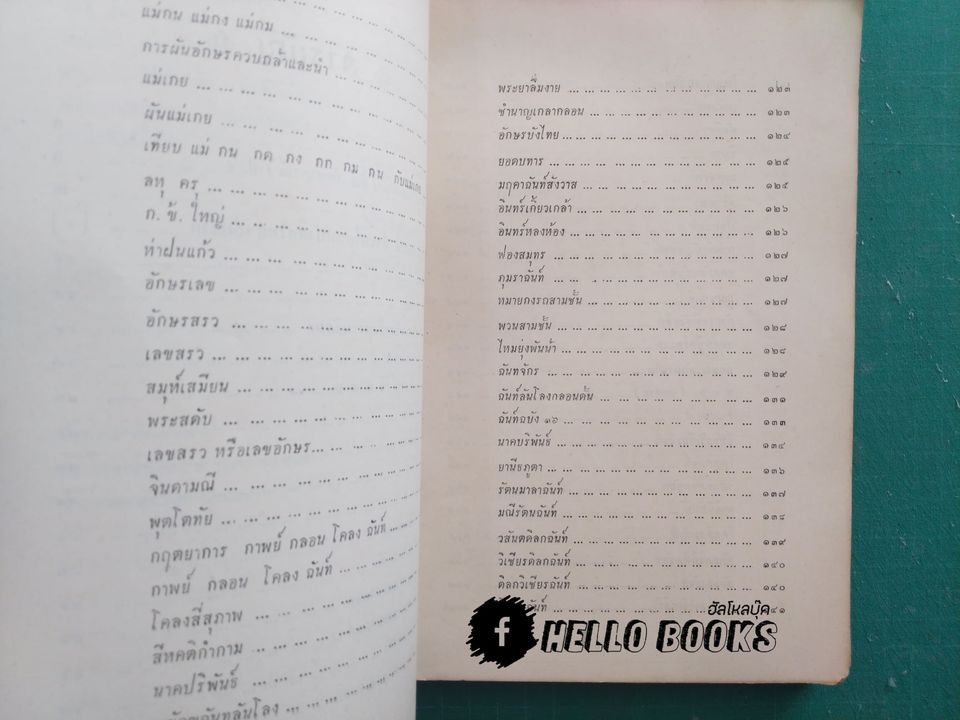 แม่กน แม่กง แม่กม ... ... ... ... ...
การผันอักษรควบกล้ำและนำ ... ... ...
แม่เกย ... ... ... ... ... ... ...
ผันแม่เกย ... ... ... ... ... ... ...
เทียบ แม่ กน กด กง กก กม กน กับแม่เกย
ลหุ ครุ ... ... ... ... ... ... ...
ก. ข. ใหญ่ ... ... ... ... ... ... ...
ท่าฝนแก้ว ... ... ... ... ... ... ...
อักษรเลข ... ... ... ... ... ... ...
อักษรสรว ... ... ... ... ... ... ...
เลขสรว ... ... ... ... ... ... ...
สมุห์เสมียน ... ... ... ... ... ... ...
พระสดับ ... ... ... ... ... ... ...
เลขสรว หรือเลขอักษร... ... ... ... ...
จินดามณี ... ... ... ... ... ... ...
พุตโตทัย ... ... ... ... ... ... ...
กฤตยาการ กาพย์ กลอน โคลง ฉันท์ ... ...
กาพย์ กลอน โคลง ฉันท์ ... ... ... ...
โคลงสี่สุภาพ ... ... ... ... ... ...
สีหคติกำกาม ... ... ... ... ... ...
นาคปริพันธ์ ... ... ... ... ... ...
พระยาลืมงาย ... ... ... ... ... ... ... ... ๑๒๓
ชำนาญเกลากลอน ... ... ... ... ... ... ... ... ๑๒๓
อักษรบังไทย ... ... ... ... ... ... ... ... ๑๒๔
ยอดบทาร ... ... ... ... ... ... ... ... ๑๒๕
มฤคาฉันท์สังวาส ... ... ... ... ... ... ... ... ๑๒๕
อินทร์เกี้ยวเกล้า ... ... ... ... ... ... ... ... ๑๒๖
อินทร์หลงห้อง ... ... ... ... ... ... ... ... ๑๒๖
ฟองสมุทร ... ... ... ... ... ... ... ... ๑๒๗
คุมราฉันท์ ... ... ... ... ... ... ... ... ๑๒๗
หมายกงรถสามชั้น ... ... ... ... ... ... ... ... ๑๒๗
พวนสามชั้น ... ... ... ... ... ... ... ... ๑๒๘
ไหมยุ่งพันน้ำ ... ... ... ... ... ... ... ... ๑๒๘
ฉันทจักร ... ... ... ... ... ... ... ... ๑๒๙
ฉันท์ลันโลงกลอนตั้น ... ... ... ... ... ... ... ๑๓๑
ฉันท์ฉบัง ๑๖ ... ... ... ... ... ... ... ... ๑๓๓
นาคบริพันธ์ ... ... ... ... ... ... ... ... ๑๓๔
ยานีธภูดา ... ... ... ... ... ... ... ... ๑๓๖
รัตนมาลาฉันท์ ... ... ... ... ... ... ... ... ๑๓๗
มณีรัตนฉันท์ ... ... ... ... ... ... ... ... ๑๓๘
วสันตดิลกฉันท์ ... ... ... ... ... ... ... ... ๑๓๙
วิเชียรดิลกฉันท์ ... ... ... ... ... ... ... ... ๑๔๐
ดิลกวิเชียรฉันท์ ... ... ... ... ... ... ... ... ๑๔๐
ฮัลโหลบุ๊ค
f HELLO BOOKS